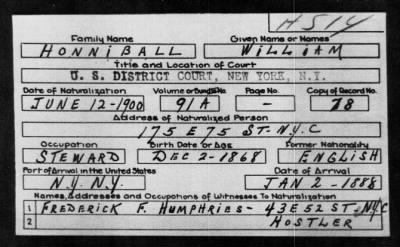 H514
Family Name Given Name or Names
HONNIBALL WILLIAM
Title and Location of Court
U. S. DISTRICT COURT, NEW YORK, N.Y.
Date of Naturalization Volume or Bundle No. Page No. Copy of Record No.
JUNE 12-1900 91A - 78
Address of Naturalized Person
175 E 75 ST. N.Y.C
Occupation Birth Date or Age Former Nationality
STEWARD DEC 2-1868 ENGLISH
Port of Arrival in the United States Date of Arrival
N.Y. N.Y. JAN 2-1888
Names, Addresses and Occupations of Witnesses To Naturalization
1 FREDERICK F. HUMPHRIES- 43 E 52 ST- NYC
2 HOSTLER